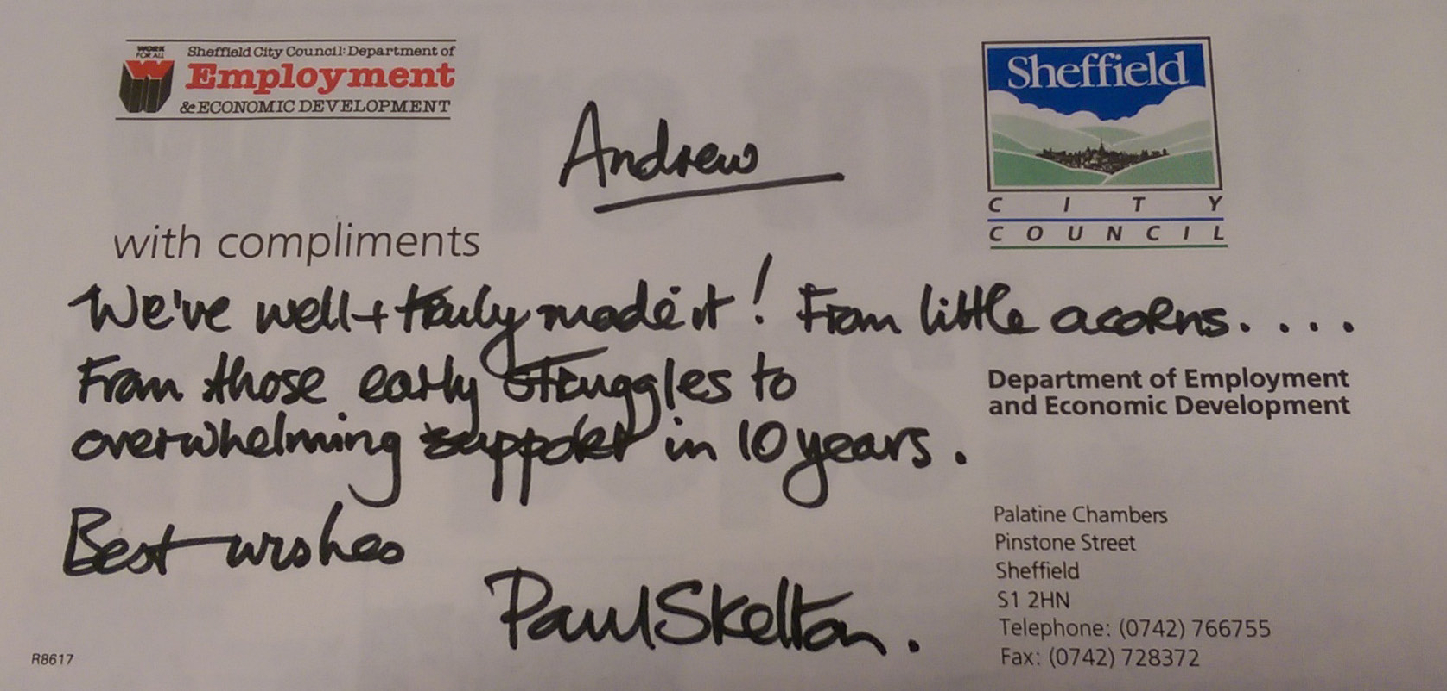 WORK
FOR ALL
Sheffield City Council: Department of
Employment
& ECONOMIC DEVELOPMENT
Sheffield
CITY
COUNCIL
Andrew
with compliments
We've well + truly made it! From little acorns. . . .
From those early struggles to
overwhelming support in 10 years.
Best wishes
Paul Skelton.
Department of Employment
and Economic Development
Palatine Chambers
Pinstone Street
Sheffield
S1 2HN
Telephone: (0742) 766755
Fax: (0742) 728372
R8617